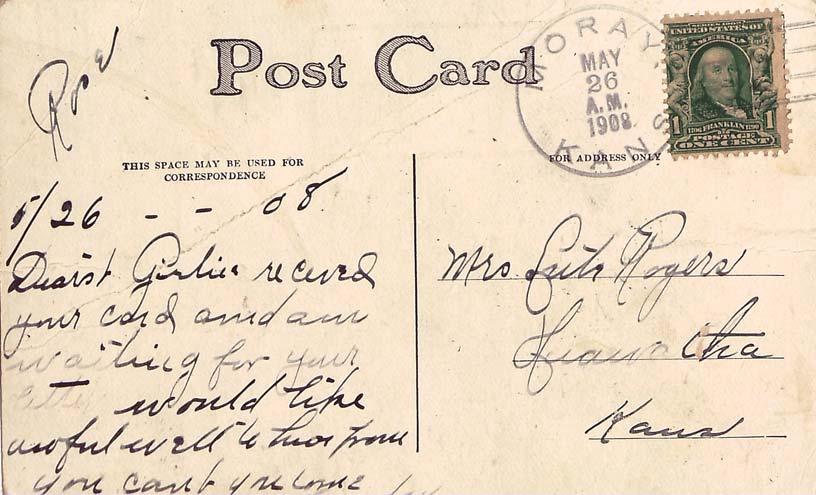 Rose
Post Card
MORAY, KANS
MAY
26
A.M.
1908
SERIES 1902
UNITED STATES OF
AMERICA
1706 FRANKLIN 1790
1 POSTAGE 1
ONE CENT
THIS SPACE MAY BE USED FOR
CORRESPONDENCE
FOR ADDRESS ONLY
5/26 - - 08
Dearst Girlie receved
your card and am
waiting for your
would like
awful well to hear from
you cant you come
Mrs Rogers
Hiawatha
Kans